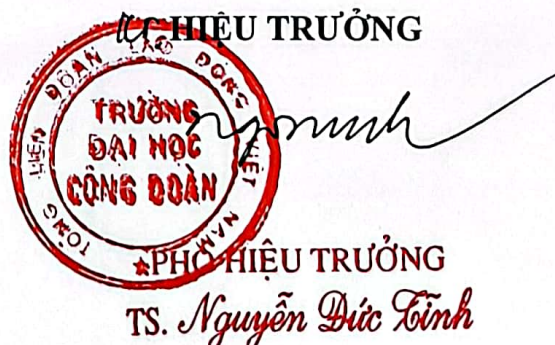 KT HIỆU TRƯỞNG
TỔNG LIÊN ĐOÀN LAO ĐỘNG VIỆT NAM
TRƯỜNG
ĐẠI HỌC
CÔNG ĐOÀN
PHÓ HIỆU TRƯỞNG
TS. Nguyễn Đức Tĩnh